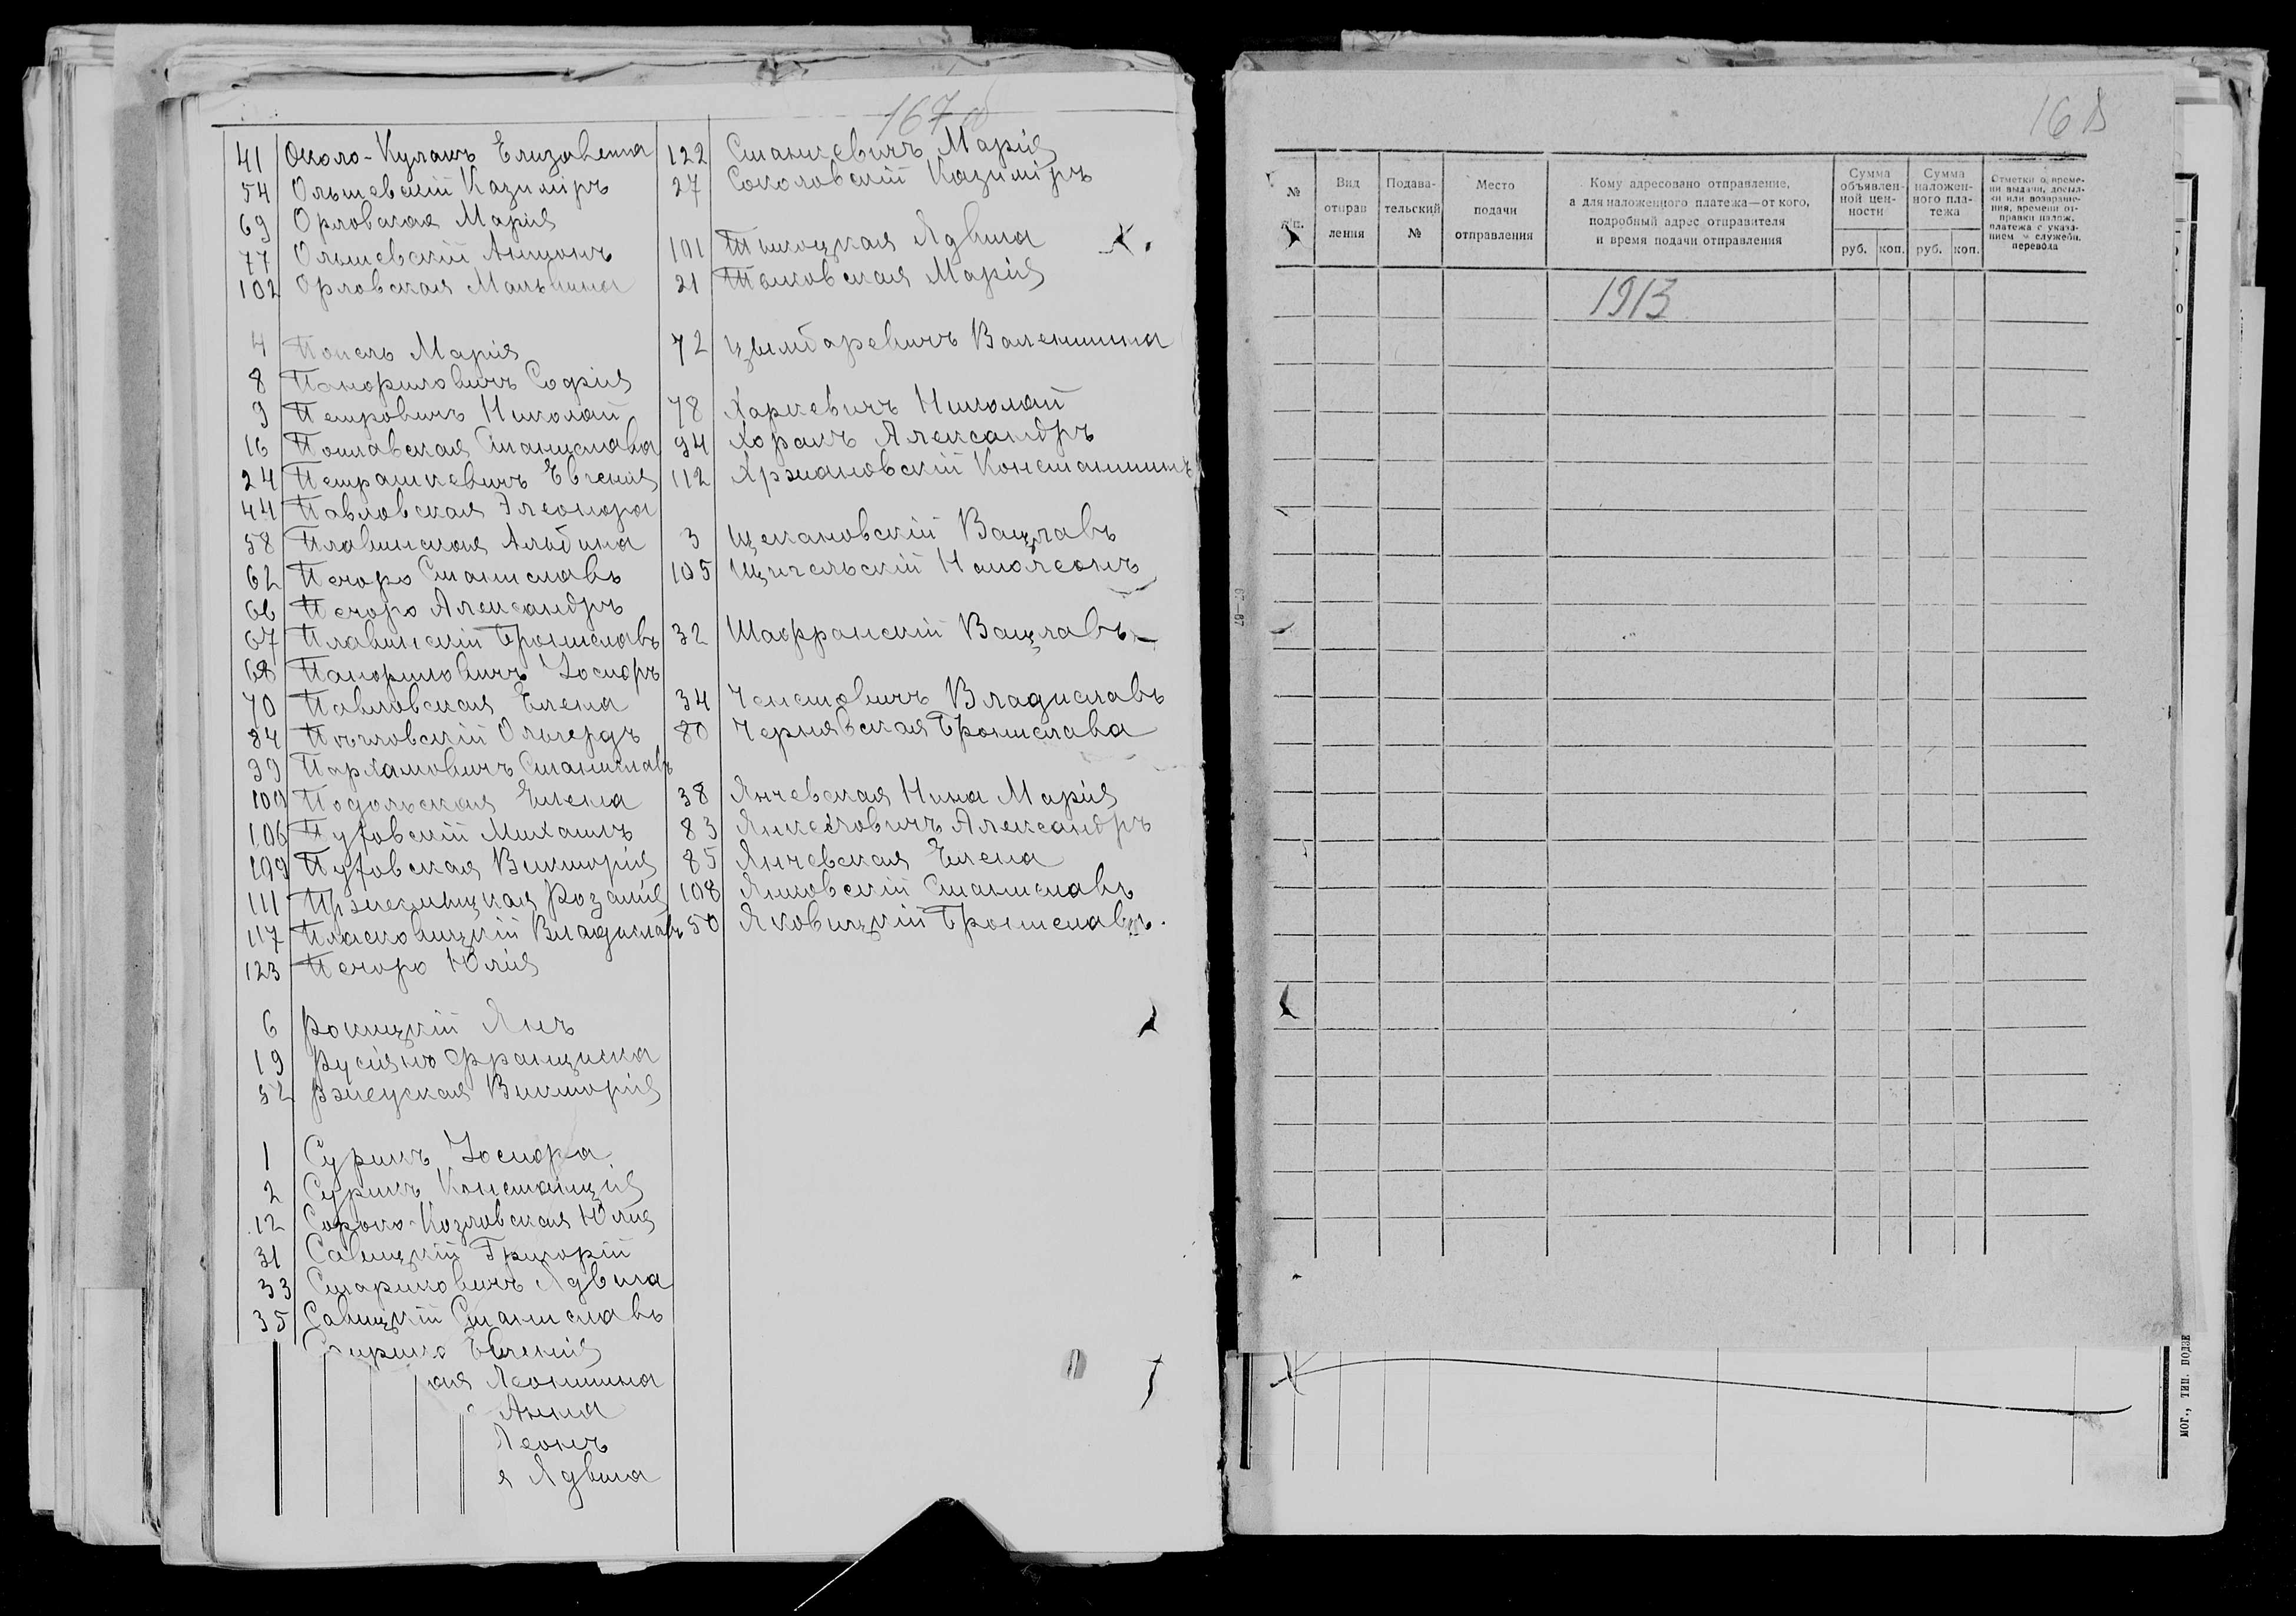 167 об
41 Около-Кулакъ Елизавета
54 Ольшевскій Казиміръ
69 Орловская Марія
77 Ольшевскій Антонъ
102 Орловская Мальвина
4 Попель Марія
8 Панфиловичъ Софія
9 Петровичъ Николай
16 Станислава
24 Петрашкевичъ Евгенія
44 Павловская Элеонора
58 Плавинская Альбина
62 Печоро Станиславъ
66 Печоро Александръ
67 Плавинскій Брониславъ
68 Панфиловичъ Іосифъ
70 Павловская Елена
84 Ольгердъ
99 Пархамовичъ Станиславъ
100 Подольская Елена
106 Михаилъ
109 Викторія
111 Розалія
117 Пласковицкій Владиславъ
123 Печоро Юлія
6 Рокицкій Янъ
19 Франциска
52 Викторія
1 Сурикъ Іосифа
2 Сурикъ Констанція
12 Сороко-Козловская Юлія
31 Савицкій Григорій
33 Стариковичъ Ядвига
35 Савицкій Станиславъ
Евгенія
ая Леонтина
Анна
Леонъ
я Ядвига
122 Станкевичъ Марія
27 Соколовскій Казиміръ
101 Ядвига
21 Марія
72 Цымбаревичъ Валентина
78 Харкевичъ Николай
94 Хоракъ Александръ
112 Хржановскій Константинъ
3 Щекановскій Вацлавъ
105 Щигельскій Наполеонъ
32 Шафранскій Вацлавъ
34 Владиславъ
80 Чернявская Бронислава
38 Янчевская Нина Марія
83 Александръ
85 Янчевская Елена
108 Янковскій Станиславъ
50 Яковицкій Брониславъ.
168
№ п/п.
Вид отправления
Подавательский №
Место подачи отправления
Кому адресовано отправление,
а для наложенного платежа—от кого,
подробный адрес отправителя
и время подачи отправления
Сумма объявленной ценности
руб. коп.
Сумма наложенного платежа
руб. коп.
Отметки о времени выдачи, досылки или возвращения, времени отправки налож. платежа с указанием № служебн. перевода
1913
мог., тип. подзе